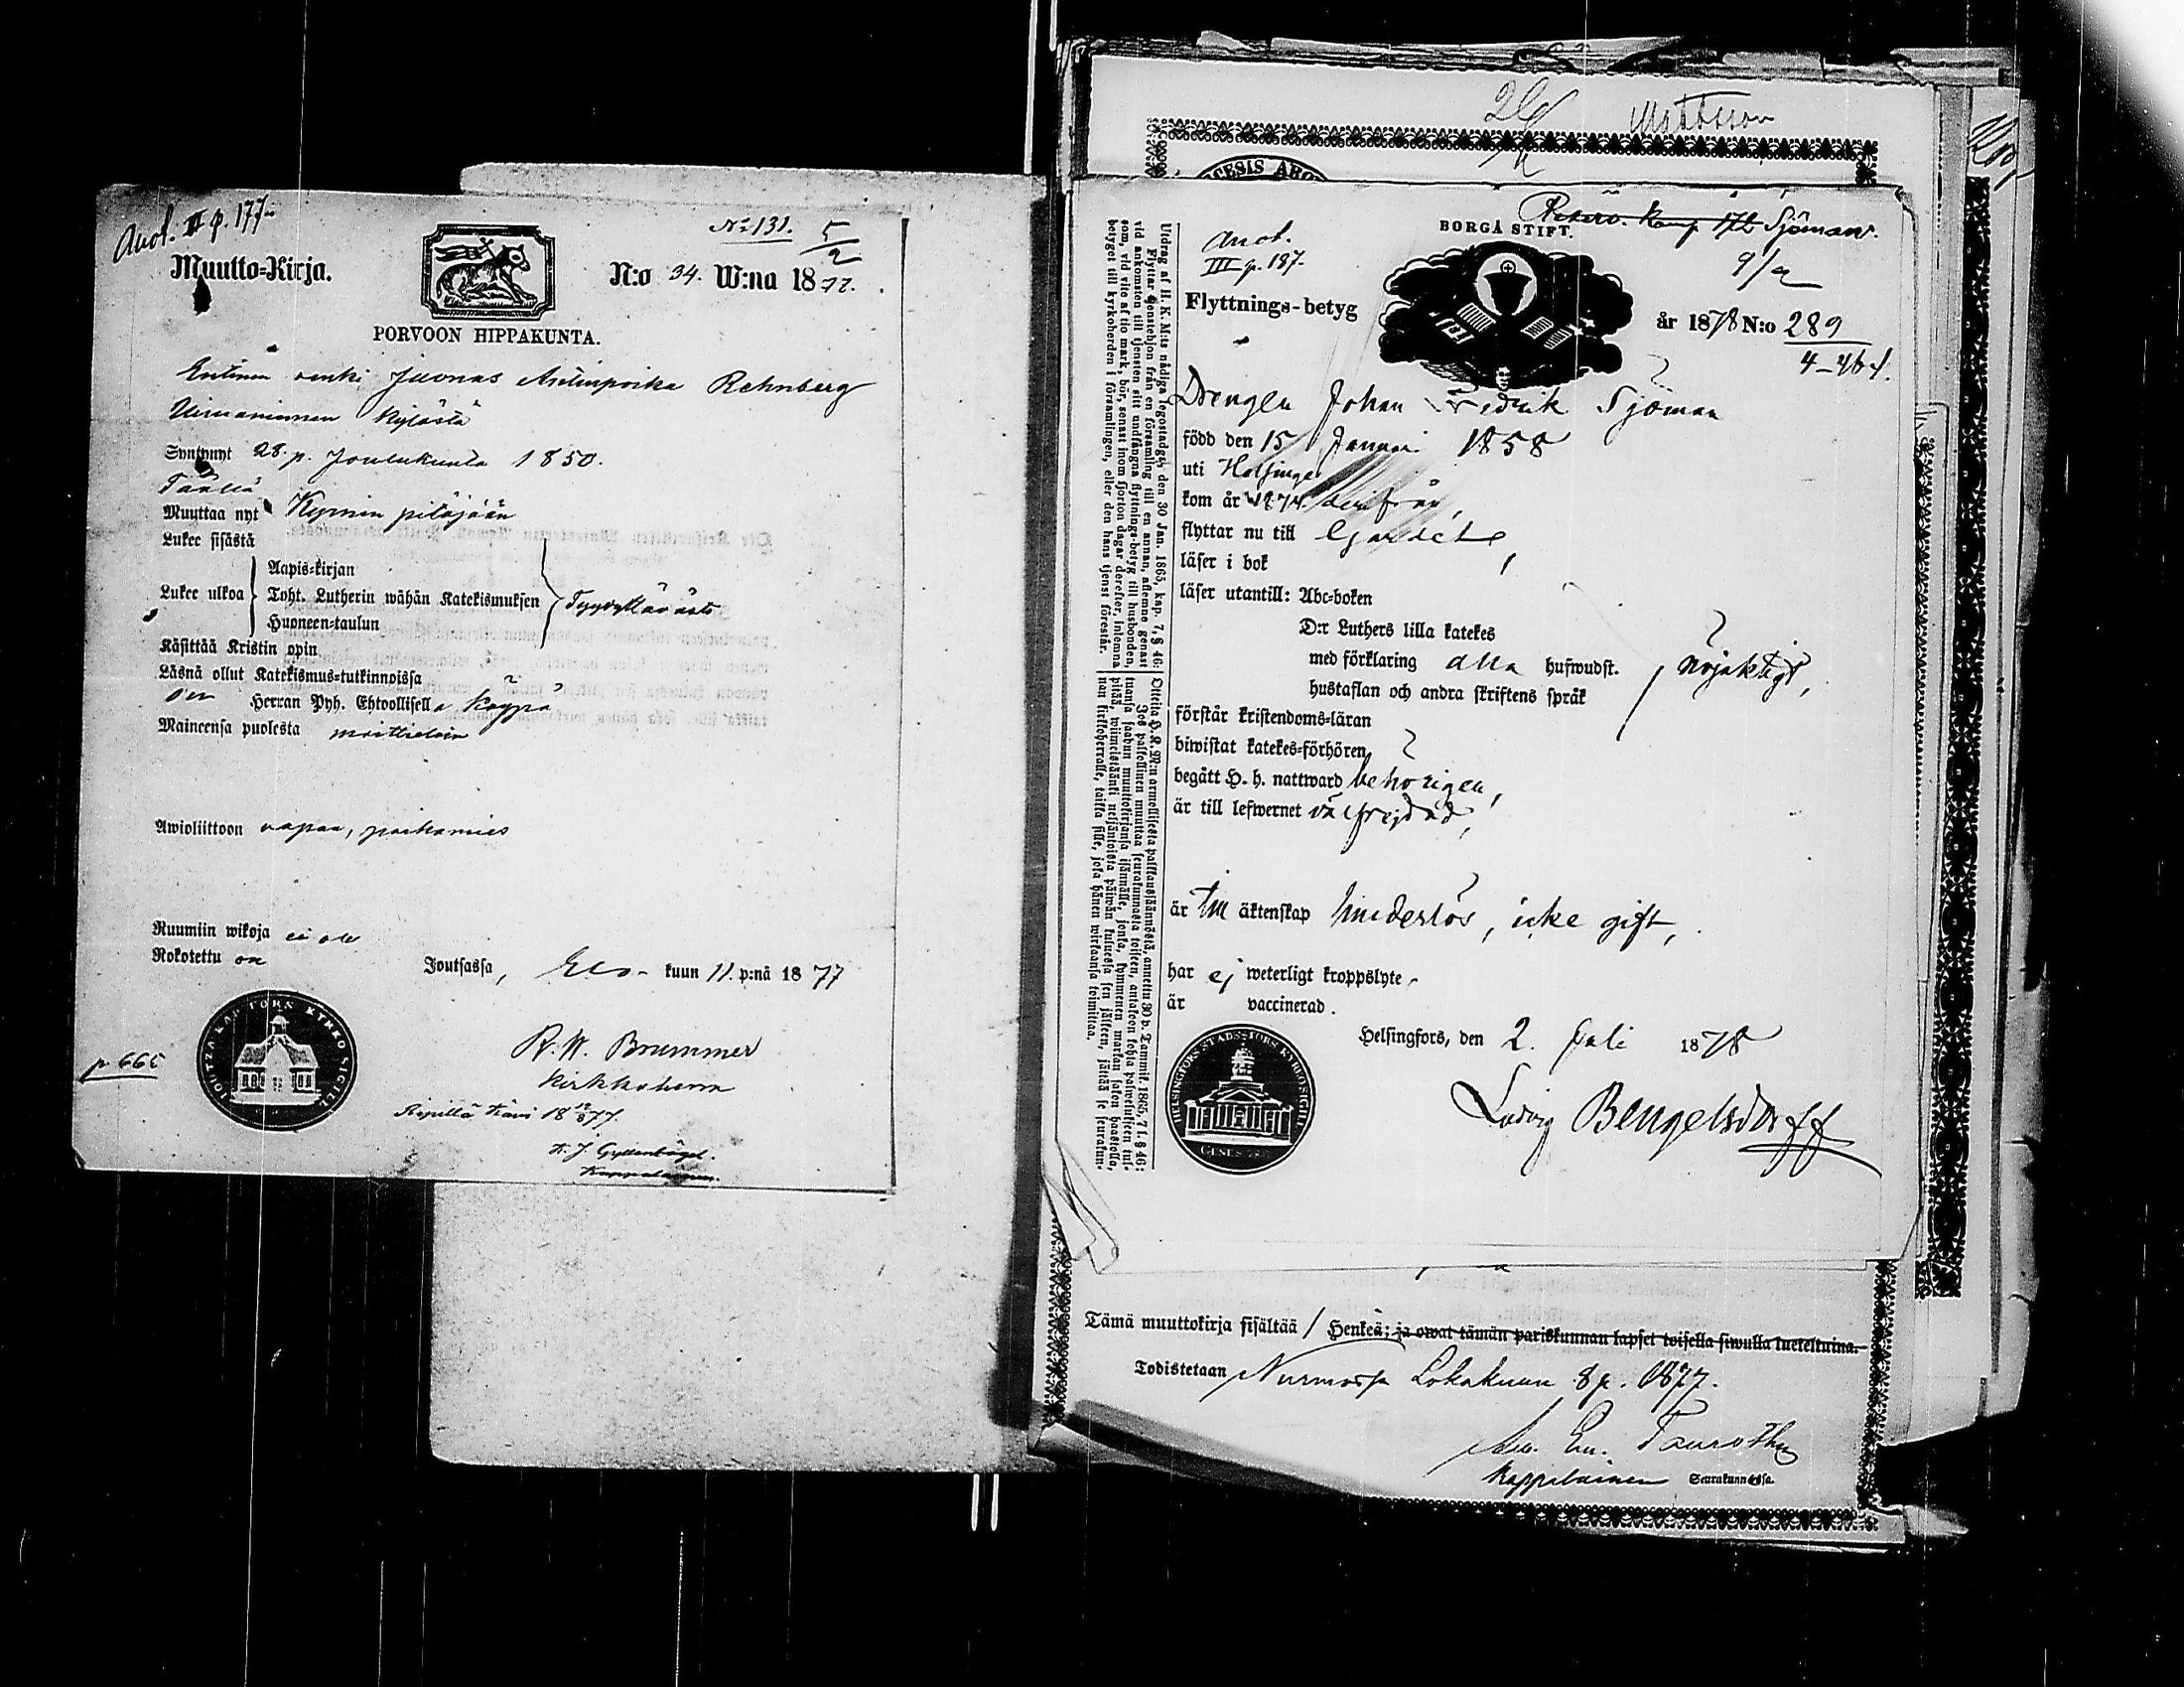 Anot. II p. 177
No 131. 5/2
Muutto-Kirja.
N:o 34. W:na 1877.
PORVOON HIPPAKUNTA.
Entinen renki Juonas Antinpoika Rehnberg
kylästä
Syntynyt 28. p. Joulukuuta 1850.
Täällä
Muuttaa nyt Kymin pitäjään
Lukee sisästä
Lukee ulkoa
Aapis-kirjan
Toht. Lutherin wähän Katekismuksen
Huoneen-taulun
Tyydyttäväisti
Käsittää Kristin opin
Läsnä ollut Katekismus-tutkinnoissa
on Herran Pyh. Ehtoollisella käypä
Maineensa puolesta moitteetoin
Awioliittoon vapaa, poikamies
Ruumiin wikoja ei ole
Rokotettu on
Joutsassa, Elo-kuun 11. p:nä 1877
R. W. Brummer
Kirkkoherra
Ripillä kävi 18 12/8 77.
K. J. Gyllenbögel.
Kappalainen.
p. 665
JOUTZA KAP FÖRS KYRKO SIGILL
26 Mattsson
CESIS ABO
Sjöman.
Anot.
III p. 187.
BORGÅ STIFT.
9/9
Flyttnings-betyg
år 1878 N:o 289
4-464.
Drengen Johan Fredrik Sjöman
född den 15 Januari 1858
uti Helsinge
kom år 1874 derifrån,
flyttar nu till
läser i bok
läser utantill: Abc-boken
D:r Luthers lilla katekes
med förklaring alla hufwudst.
hustaflan och andra skriftens språk
nöjaktigt,
förstår kristendoms-läran
biwistat katekes-förhören
begått H. h. nattward behörigen,
är till lefwernet välfrejdad,
är till äktenskap hinderlös, icke gift,
har ej weterligt kroppslyte
är vaccinerad.
Helsingfors, den 2. Juli 1878
Ludvig Bengelsdorff
HELSINGFORS STADS FÖRS. KYRKO SIGILL
Utdrag af H. K. M:ts nådiga legostadga, den 30 Jan. 1865, kap. 7, § 46:
Flyttar tjenstehjon från en församling till en annan, aflemne genast
vid ankomsten till tjensten sitt undfångna flyttnings-betyg till husbonden,
som, vid vite af tio mark, bör, senast inom fjorton dagar derefter, inlemna
betyget till kyrkoherden i församlingen, eller den hans tjenst förestår.
Otteita H. K. M:n armollisesta palkkaussäännöstä, annettu 30 p. Tammik. 1865, 7 l. § 46:
Jos palkollinen muuttaa seurakunnasta toiseen, antakoon kohta palwelukseen tul-
tuansa saadun muuttokirjansa isännälle, jonka, kymmenen markan sakon haastolla,
pitää, wiimeistäänki neljäntoista päiwän kuluessa sen jälkeen, jättää se seurakun-
nan kirkkoherralle, taikka sille, joka hänen wirkaansa toimittaa.
Tämä muuttokirja sisältää / Henkeä; ja owat tämän pariskunnan lapset toisella siwulla lueteltuina.
Todistetaan Nurmossa Lokakuun 8 p. 1877.
Kappalainen Seurakunnassa.